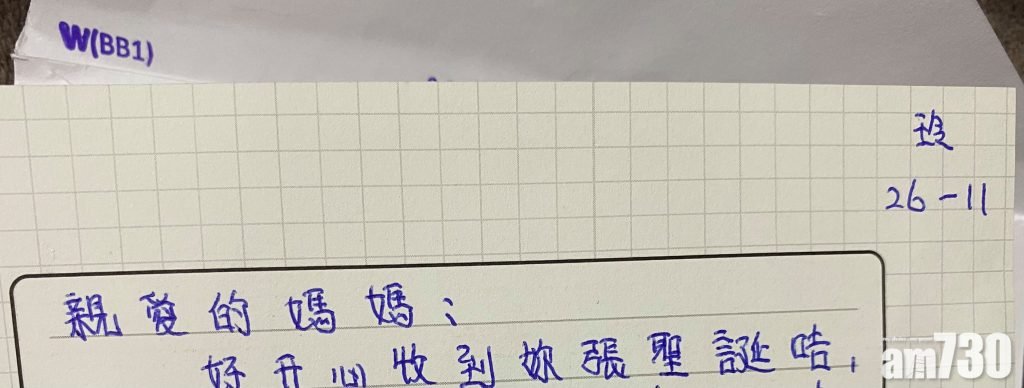 W(BB1)
琅
26-11
親愛的媽媽：
好開心收到妳張聖誕咭，
am730